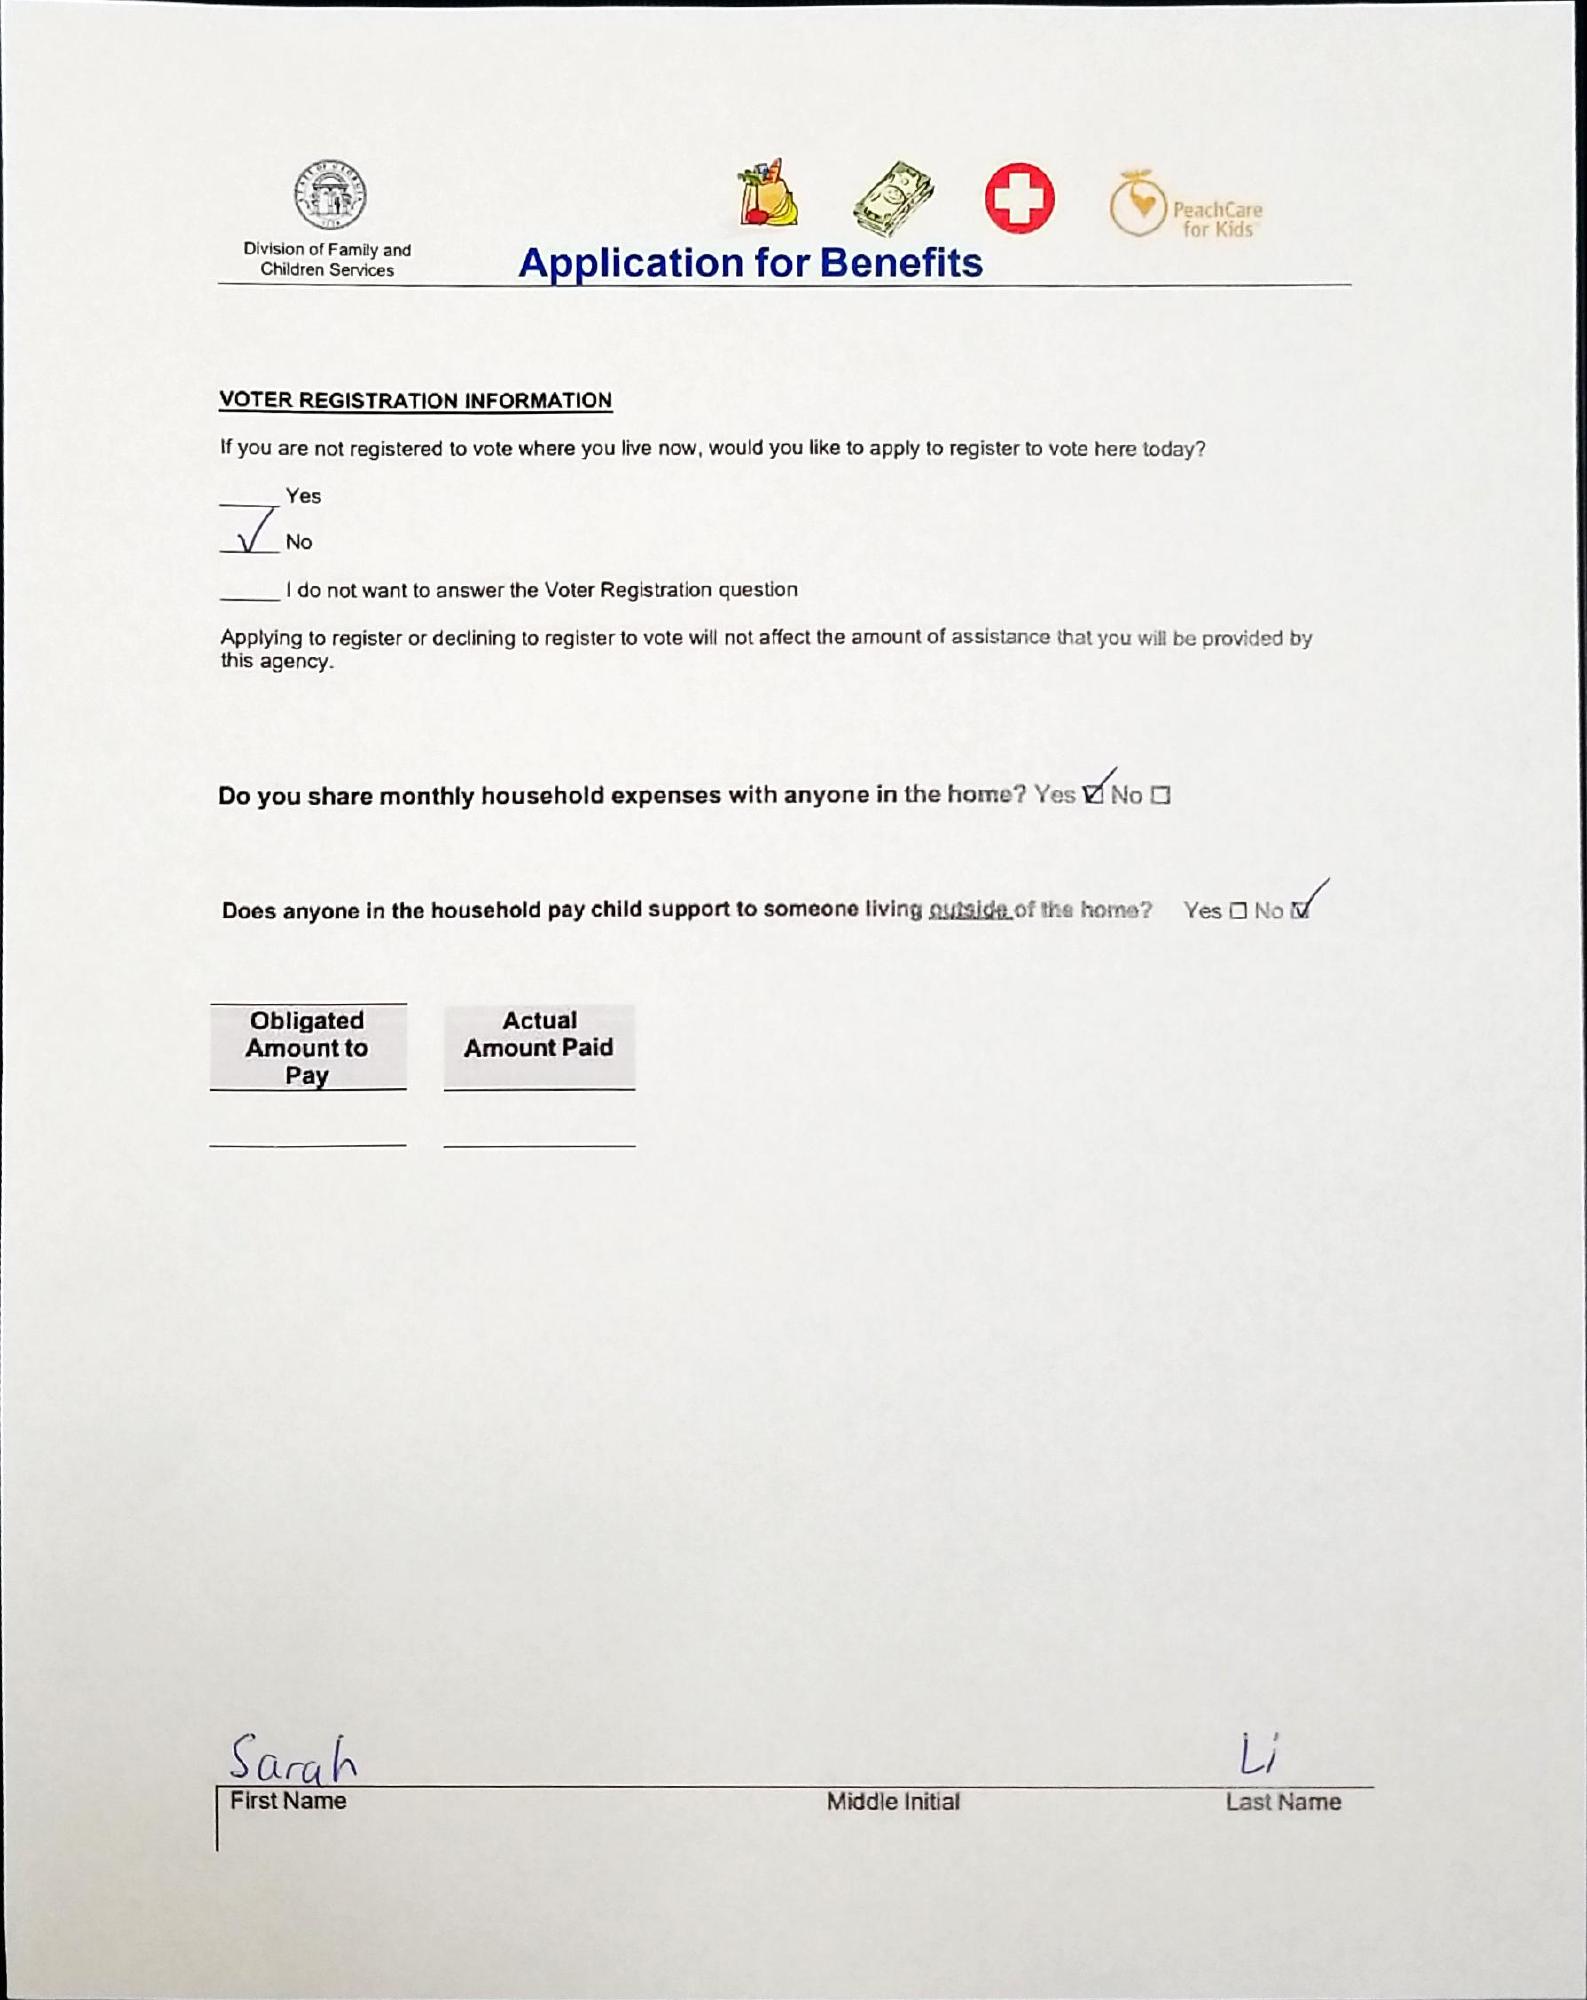 STATE OF GEORGIA
Division of Family and
Children Services
Application for Benefits
PeachCare
for Kids
VOTER REGISTRATION INFORMATION
If you are not registered to vote where you live now, would you like to apply to register to vote here today?
Yes
√ No
I do not want to answer the Voter Registration question
Applying to register or declining to register to vote will not affect the amount of assistance that you will be provided by
this agency.
Do you share monthly household expenses with anyone in the home? Yes ☑ No ☐
Does anyone in the household pay child support to someone living outside of the home? Yes ☐ No ☑
Obligated
Amount to
Pay
Actual
Amount Paid
Sarah Li
First Name Middle Initial Last Name